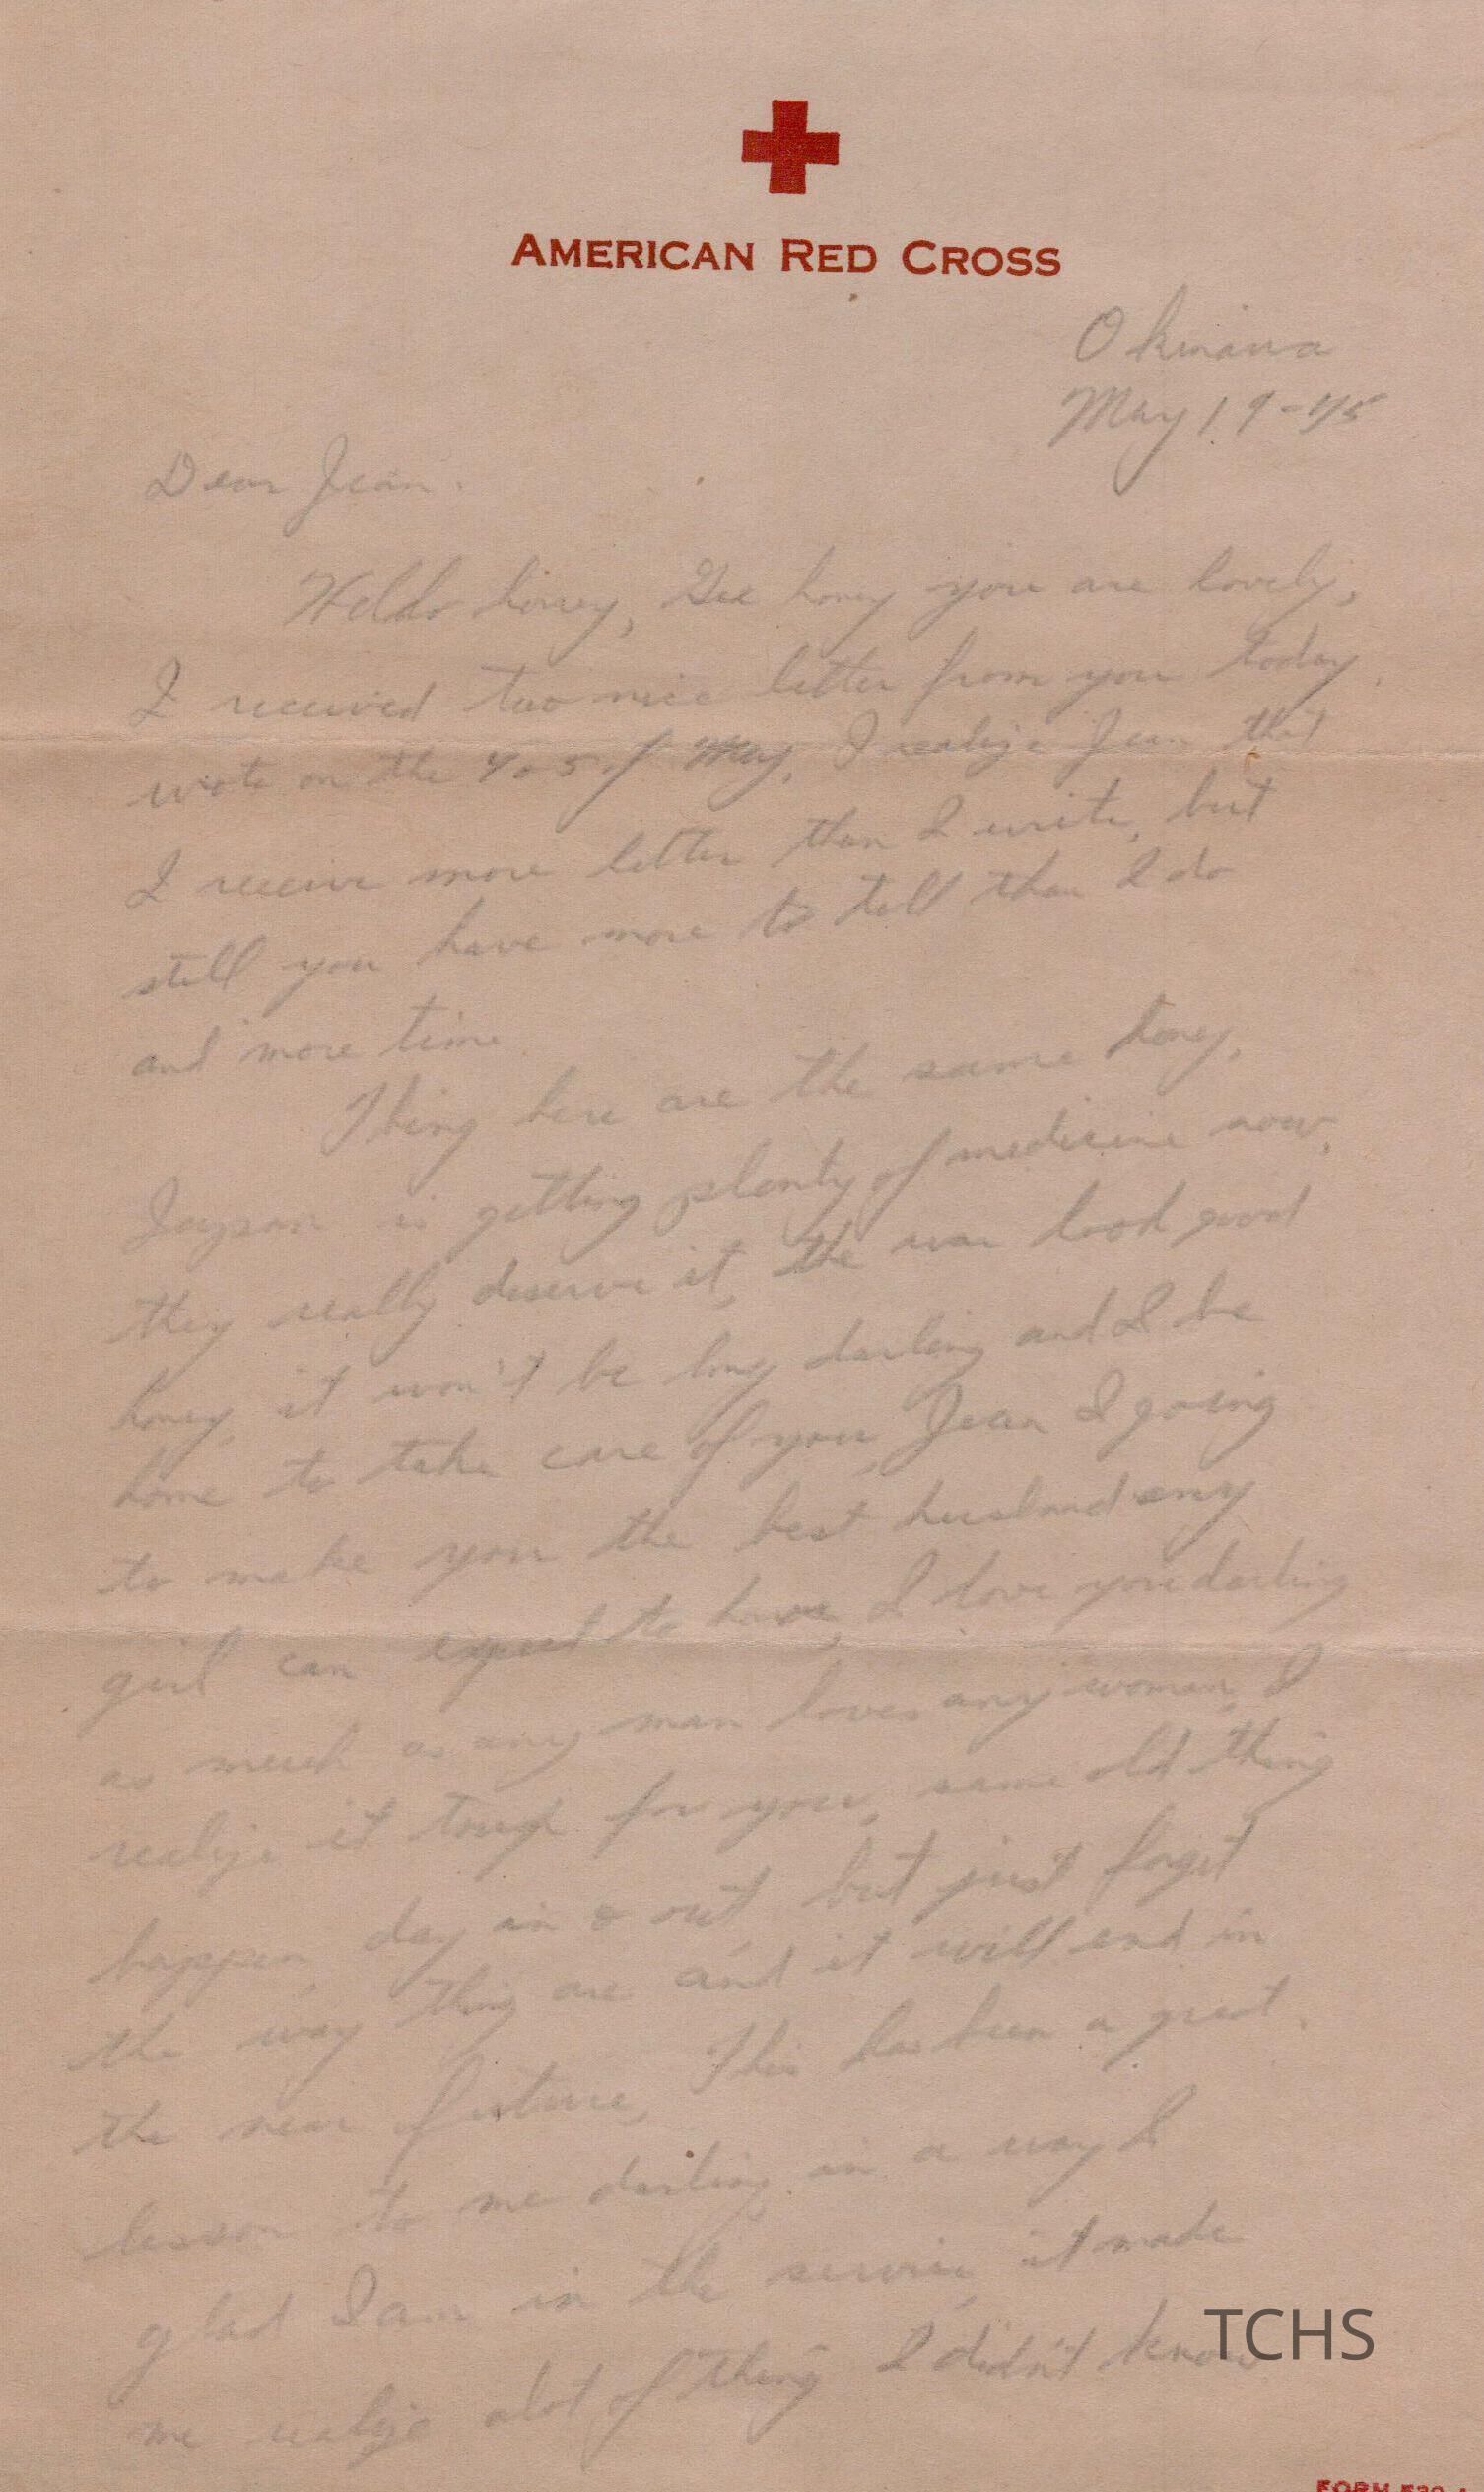 AMERICAN RED CROSS
Okinawa
May 19-45
Dear Jean.
Hello honey, Gee honey you are lovely,
I received two nice letter from you today
wrote on the 4 o 5 of May, I realize Jean that
I receive more letter than I write, but
still you have more to tell than I do
and more time.
Thing here are the same honey,
is getting plenty of medicine now,
they really deserve it, the war look good
honey, it won't be long darling and I be
home to take care of you, Jean I going
to make you the best husband any
girl can expect to have, I love you darling
as much as any man loves any woman, I
realize it tough for you, same old thing
happen day in & out, but just forget
the way thing are and it will end in
the near future, This has been a great
lesson to me darling in a way I
glad I am in the service, it made
me realize alot of thing I didn't know
TCHS